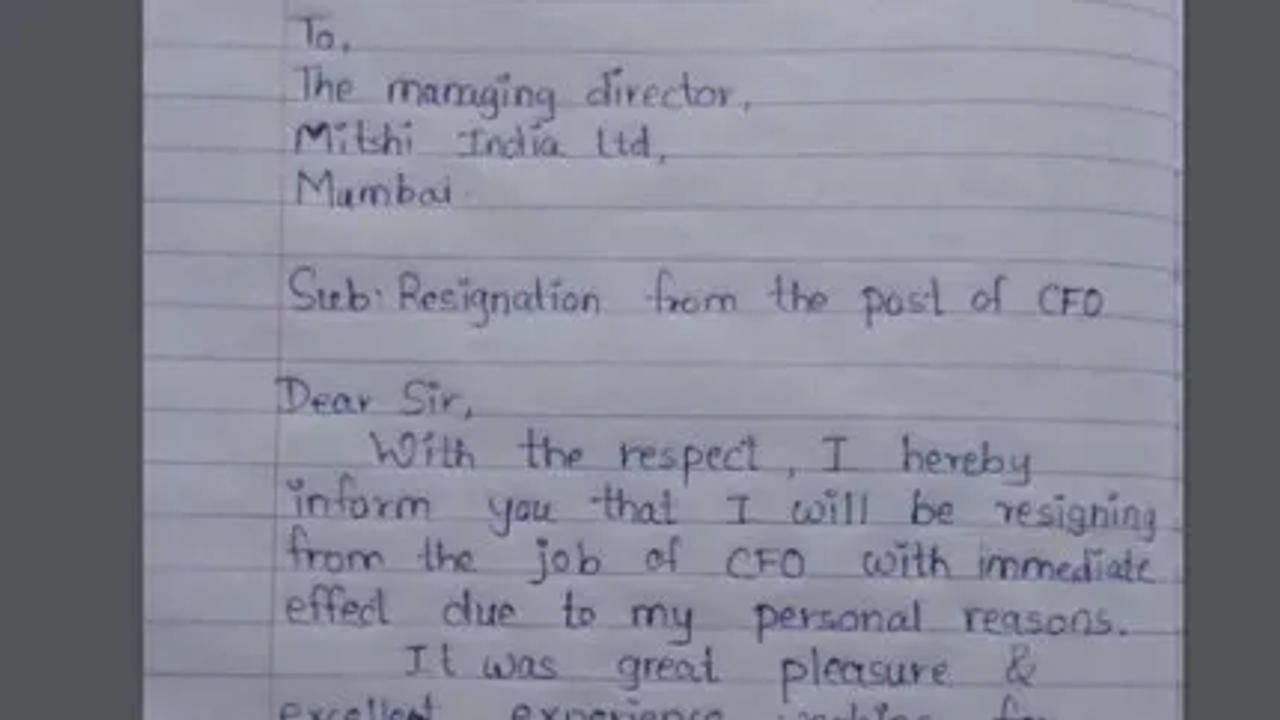 To,
The managing director,
Mitshi India Ltd,
Mumbai.
Sub: Resignation from the post of CFO
Dear Sir,
With the respect, I hereby
inform you that I will be resigning
from the job of CFO with immediate
effect due to my personal reasons.
It was great pleasure &
excellent experience working for